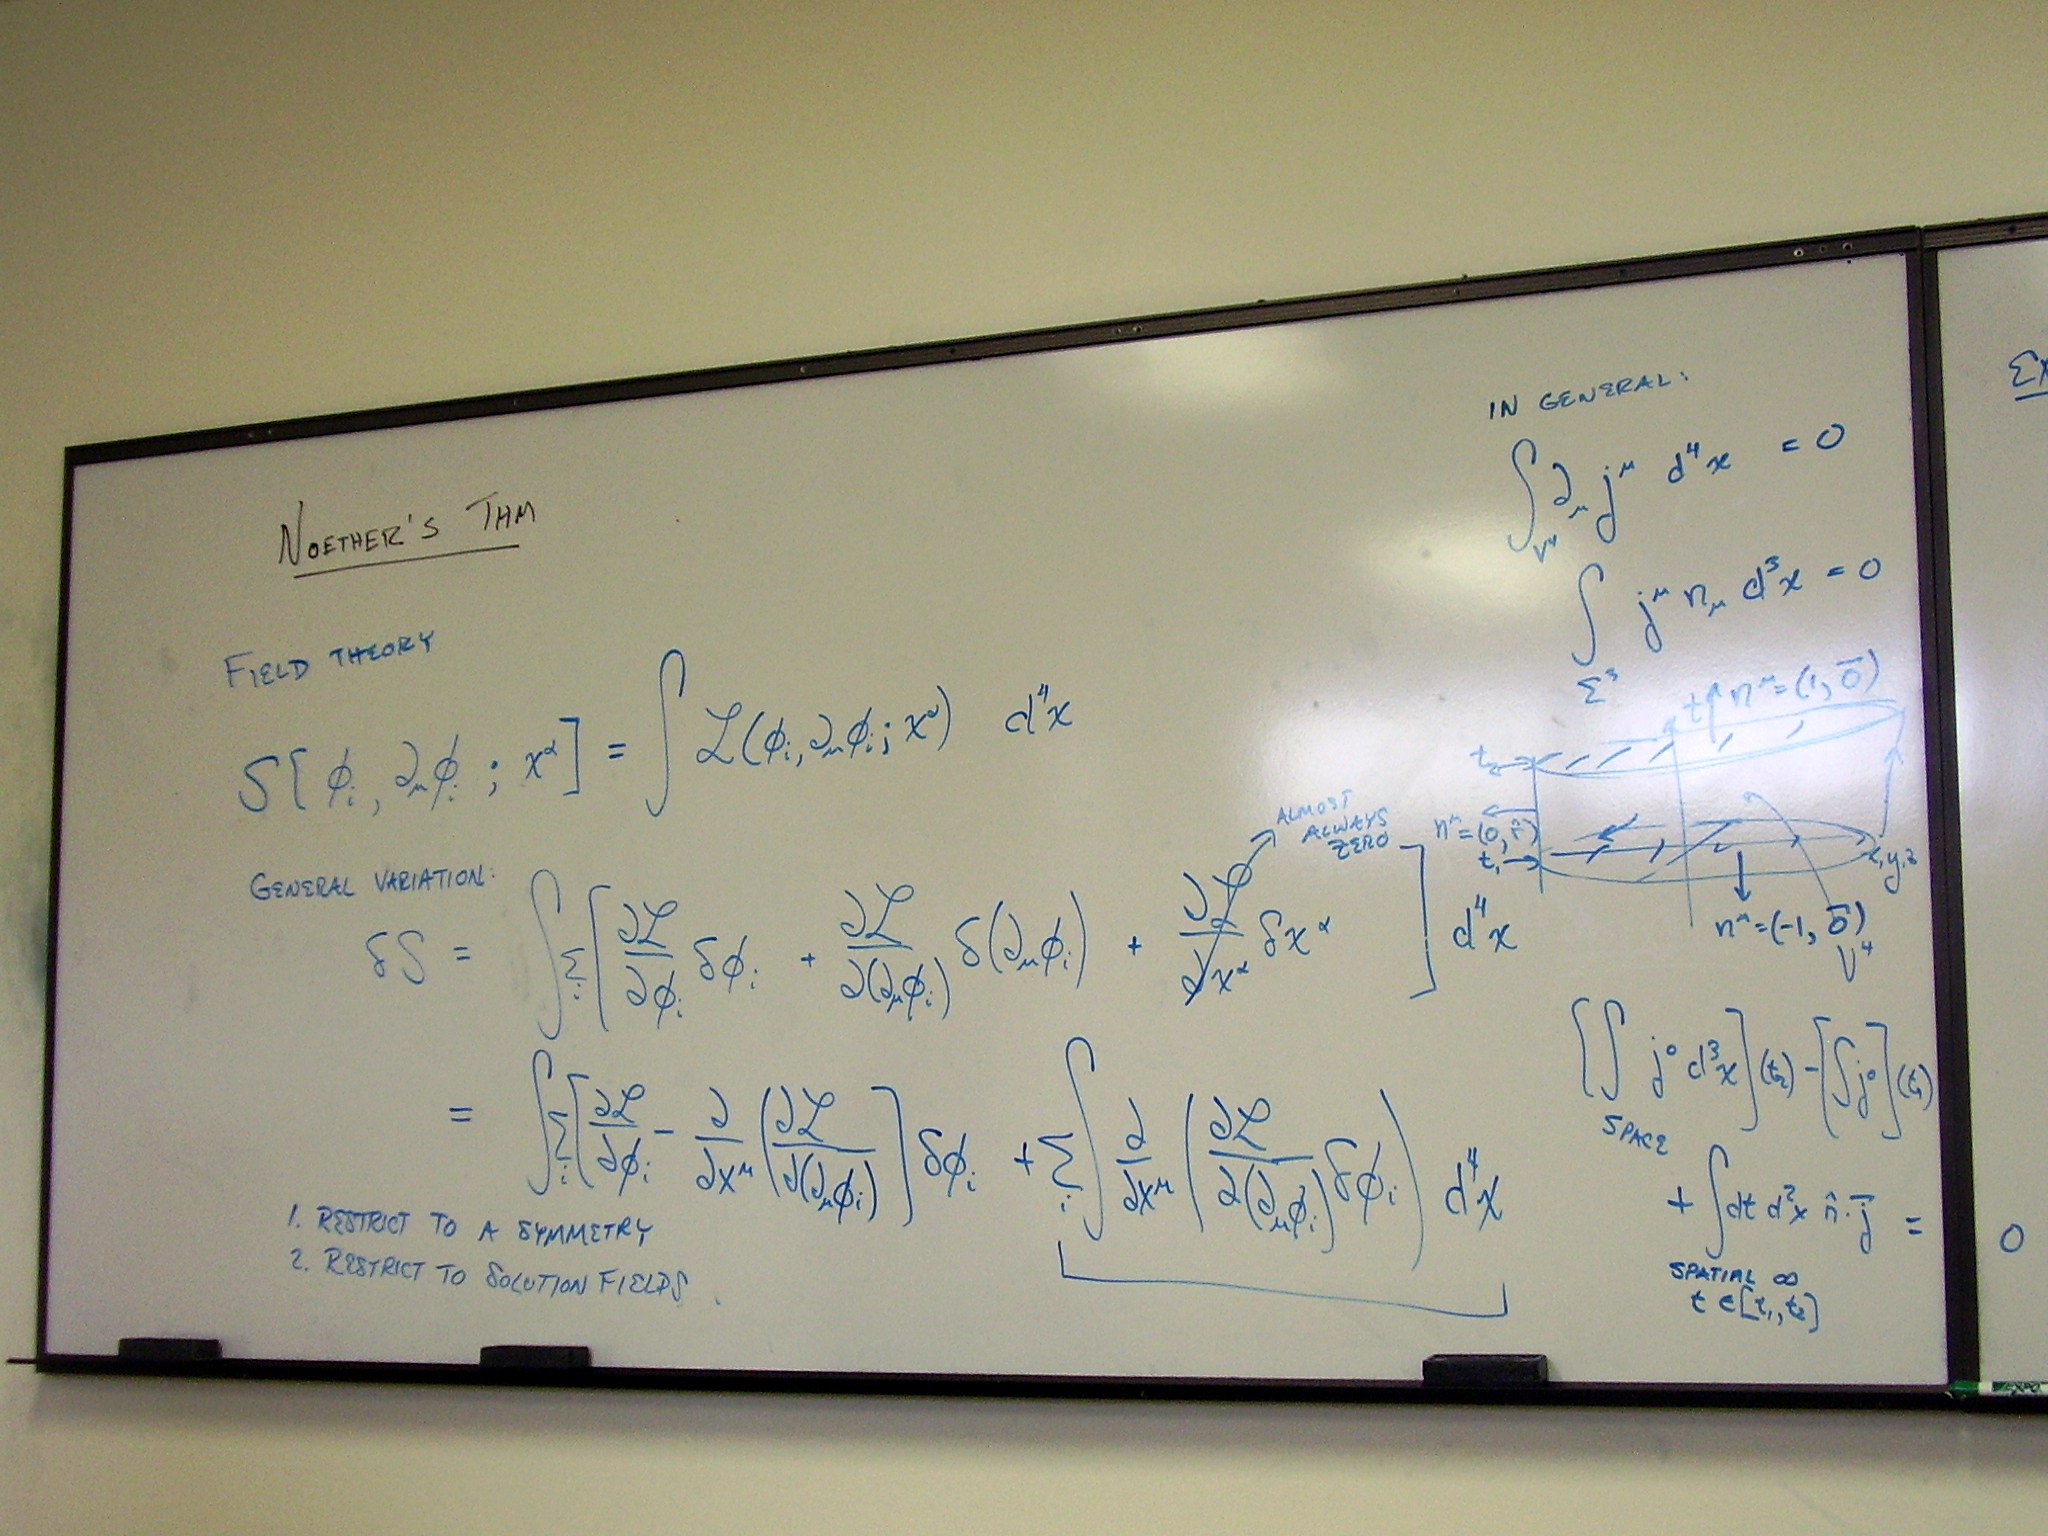 NOETHER'S THM
FIELD THEORY
S[ϕᵢ, ∂_μϕᵢ ; x^α] = ∫ ℒ(ϕᵢ, ∂_μϕᵢ; x^α) d⁴x
GENERAL VARIATION:
δS = ∫ Σᵢ [ ∂ℒ/∂ϕᵢ δϕᵢ + ∂ℒ/∂(∂_μϕᵢ) δ(∂_μϕᵢ) + ∂ℒ/∂x^α δx^α ] d⁴x
ALMOST
ALWAYS
ZERO
= ∫ Σᵢ [ ∂ℒ/∂ϕᵢ - ∂/∂x^μ (∂ℒ/∂(∂_μϕᵢ)) ] δϕᵢ + Σᵢ ∫ ∂/∂x^μ ( ∂ℒ/∂(∂_μϕᵢ) δϕᵢ ) d⁴x
1. RESTRICT TO A SYMMETRY
2. RESTRICT TO SOLUTION FIELDS
IN GENERAL:
∫_V⁴ ∂_μ j^μ d⁴x = 0
∫_Σ³ j^μ n_μ d³x = 0
t n^μ=(1, 0̄)
t₂→
n^μ=(0, r̂)
t₁→
x,y,z
n^μ=(-1, 0̄)
V⁴
[∫ j⁰ d³x](t₂) - [∫j⁰](t₁)
SPACE
+ ∫dt d²x n̂·j̄ = 0
SPATIAL ∞
t ∈[t₁,t₂]
Ex